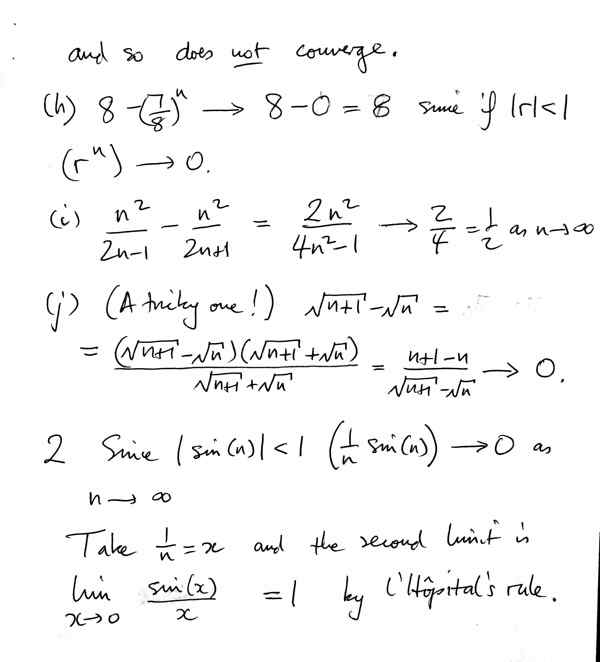 and so does not converge.
(h) 8 - (7/8)^n → 8 - 0 = 8 since if |r| < 1
(r^n) → 0.
(i) n^2/(2n-1) - n^2/(2n+1) = 2n^2/(4n^2-1) → 2/4 = 1/2 as n→∞
(j) (A tricky one!) √(n+1) - √n =
= (√(n+1) - √n)(√(n+1) + √n)/(√(n+1) + √n) = (n+1-n)/(√(n+1) - √n) → 0.
2 Since |sin(n)| < 1 (1/n sin(n)) → 0 as
n → ∞
Take 1/n = x and the second limit is
lim x→0 sin(x)/x = 1 by L'Hôpital's rule.